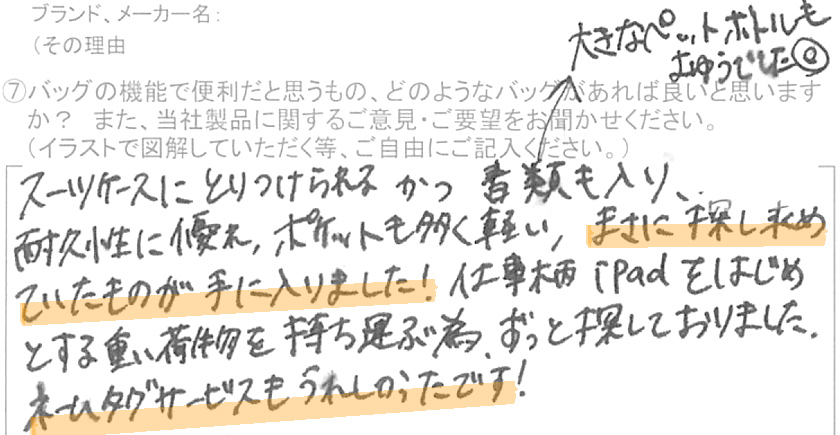 ブランド、メーカー名:
(その理由
大きなペットボトルも
よゆうでした
⑦バッグの機能で便利だと思うもの、どのようなバッグがあれば良いと思います
か? また、当社製品に関するご意見・ご要望をお聞かせください。
(イラストで図解していただく等、ご自由にご記入ください。)
スーツケースにとりつけられる かつ 書類も入り、
耐久性に優れ, ポケットも多く軽い, まさに探し求め
ていたものが手に入りました! 仕事柄 iPadをはじめ
とする重い荷物を持ち運ぶ為、ずっと探しておりました.
ネームタグサービスもうれしかったです!